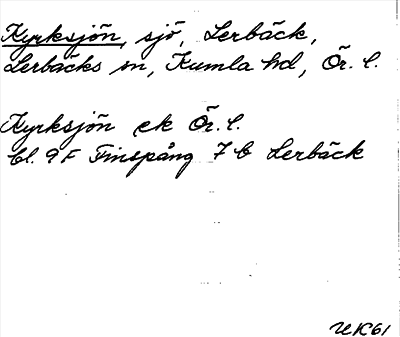 Kyrksjön, sjö, Lerbäck,
Lerbäcks sn, Kumla hd, Ör. l.
Kyrksjön ek Ör. l.
bl. 9 F Finspång 7 b Lerbäck
UK61